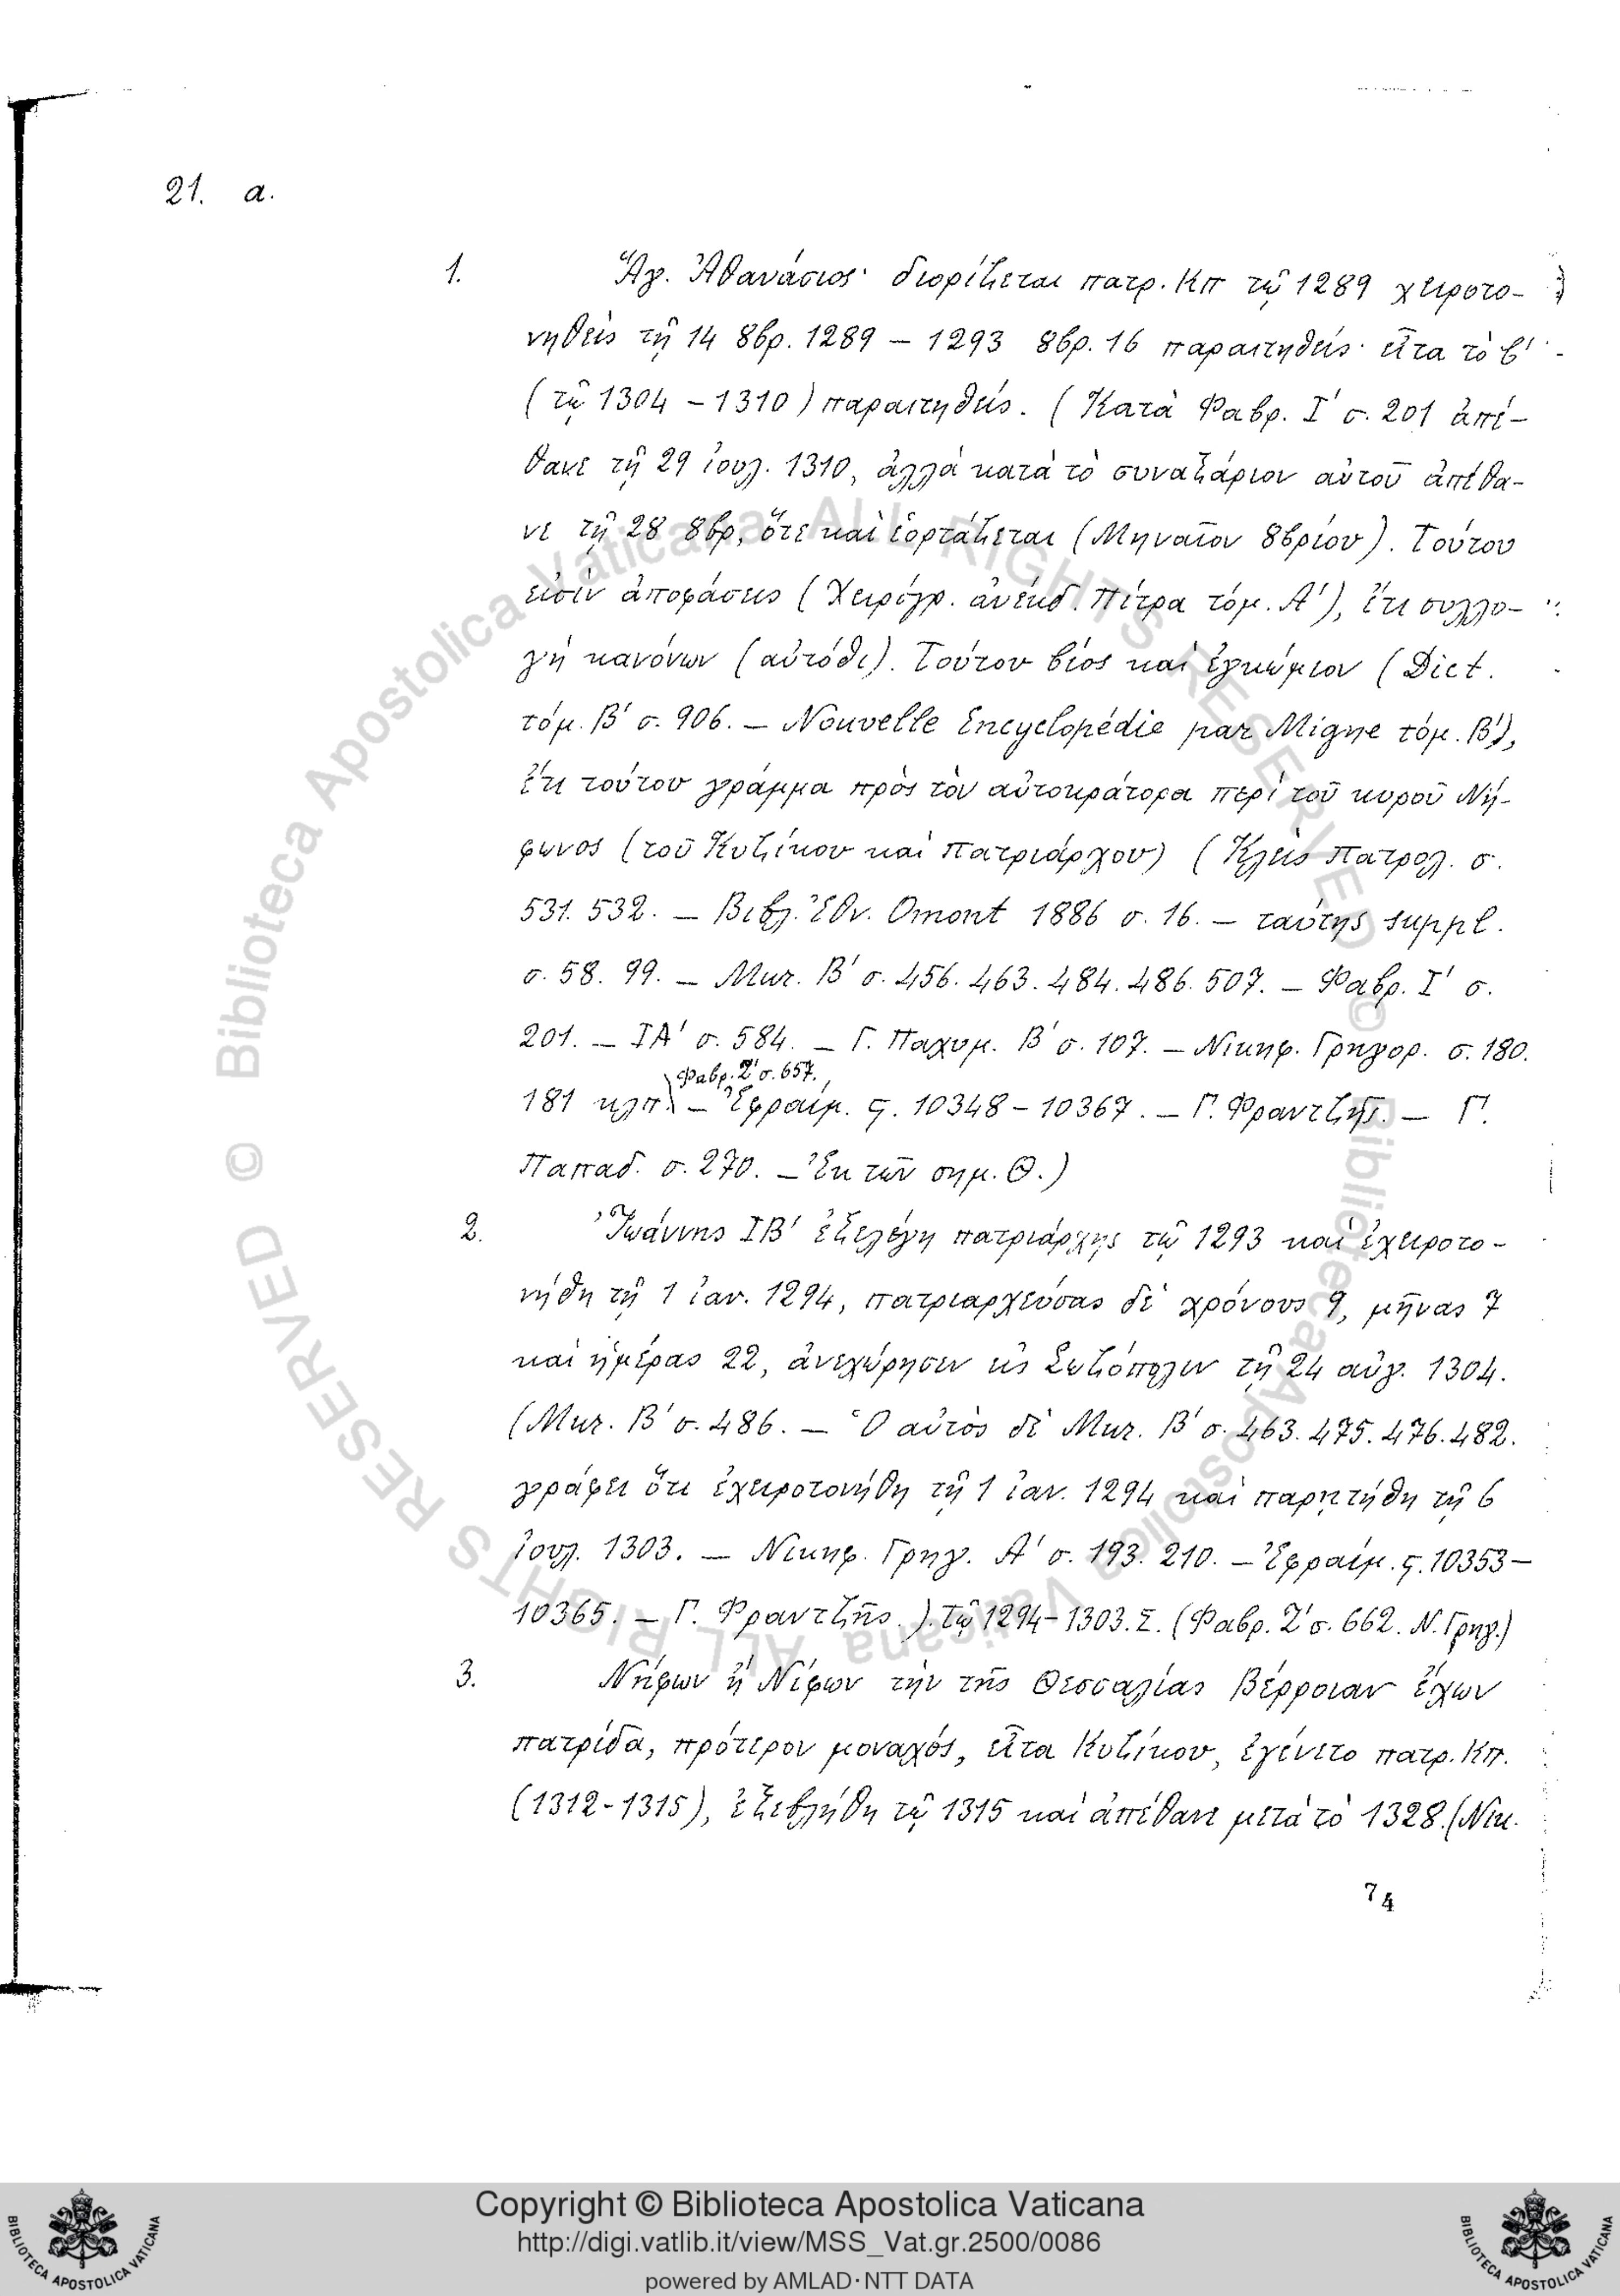 21. α.
1. Ἅγ. Ἀθανάσιος· διορίζεται πατρ. Κπ τῷ 1289 χειροτο-
νηθεὶς τῇ 14 8βρ. 1289 – 1293 8βρ. 16 παραιτηθείς· εἶτα τὸ β'
(τῷ 1304 – 1310) παραιτηθείς. (Κατὰ Φαβρ. Ι' σ. 201 ἀπέ-
θανε τῇ 29 ἰουλ. 1310, ἀλλὰ κατὰ τὸ συναξάριον αὐτοῦ ἀπέθα-
νε τῇ 28 8βρ, ὅτε καὶ ἑορτάζεται (Μηναῖον 8βρίου). Τούτου
εἰσὶν ἀποφάσεις (Χειρόγρ. ἀνέκδ. Πίτρα τόμ. Α'), ἔτι συλλο-
γὴ κανόνων (αὐτόθι). Τούτου βίος καὶ ἐγκώμιον (Dict.
τόμ. Β' σ. 906. – Nouvelle Encyclopédie par Migne τόμ. Β'),
ἔτι τούτου γράμμα πρὸς τὸν αὐτοκράτορα περὶ τοῦ κυροῦ Νή-
φωνος (τοῦ Κυζίκου καὶ πατριάρχου) (Κλεὶς Πατρολ. σ.
531. 532. – Βιβλ. Ἐθν. Omont 1886 σ. 16. – ταύτης suppl.
σ. 58. 99. – Μυτ. Β' σ. 456. 463. 484. 486. 507. – Φαβρ. Ι' σ.
201. – ΙΑ' σ. 584. – Γ. Παχυμ. Β' σ. 107. – Νικηφ. Γρηγορ. σ. 180.
Φαβρ. Ζ' σ. 657.
181 κλπ. – Ἐφραίμ. ς. 10348 – 10367. – Γ. Φραντζῆς. – Γ.
Παπαδ. σ. 270. – Ἐκ τῶν σημ. Θ.)
2. Ἰωάννης ΙΒ' ἐξελέγη πατριάρχης τῷ 1293 καὶ ἐχειροτο-
νήθη τῇ 1 ἰαν. 1294, πατριαρχεύσας δὲ χρόνους 9, μῆνας 7
καὶ ἡμέρας 22, ἀνεχώρησεν εἰς Σωζόπολιν τῇ 24 αὐγ. 1304.
(Μυτ. Β' σ. 486. – Ὁ αὐτὸς δὲ Μυτ. Β' σ. 463. 475. 476. 482.
γράφει ὅτι ἐχειροτονήθη τῇ 1 ἰαν. 1294 καὶ παρῃτήθη τῇ 6
ἰουλ. 1303. – Νικηφ. Γρηγ. Α' σ. 193. 210. – Ἐφραίμ. ς. 10353 –
10365. – Γ. Φραντζῆς.). Τῷ 1294 – 1303. Σ. (Φαβρ. Ζ' σ. 662. Ν. Γρηγ.)
3. Νήφων ἢ Νίφων τὴν τῆς Θεσσαλίας Βέρροιαν ἔχων
πατρίδα, πρότερον μοναχός, εἶτα Κυζίκου, ἐγένετο πατρ. Κπ.
(1312-1315), ἐξεβλήθη τῷ 1315 καὶ ἀπέθανε μετὰ τὸ 1328. (Νικ.
74
© Biblioteca Apostolica Vaticana ALL RIGHTS RESERVED
© Biblioteca Apostolica Vaticana ALL RIGHTS RESERVED
Copyright © Biblioteca Apostolica Vaticana
http://digi.vatlib.it/view/MSS_Vat.gr.2500/0086
powered by AMLAD·NTT DATA
BIBLIOTECA APOSTOLICA VATICANA
BIBLIOTECA APOSTOLICA VATICANA